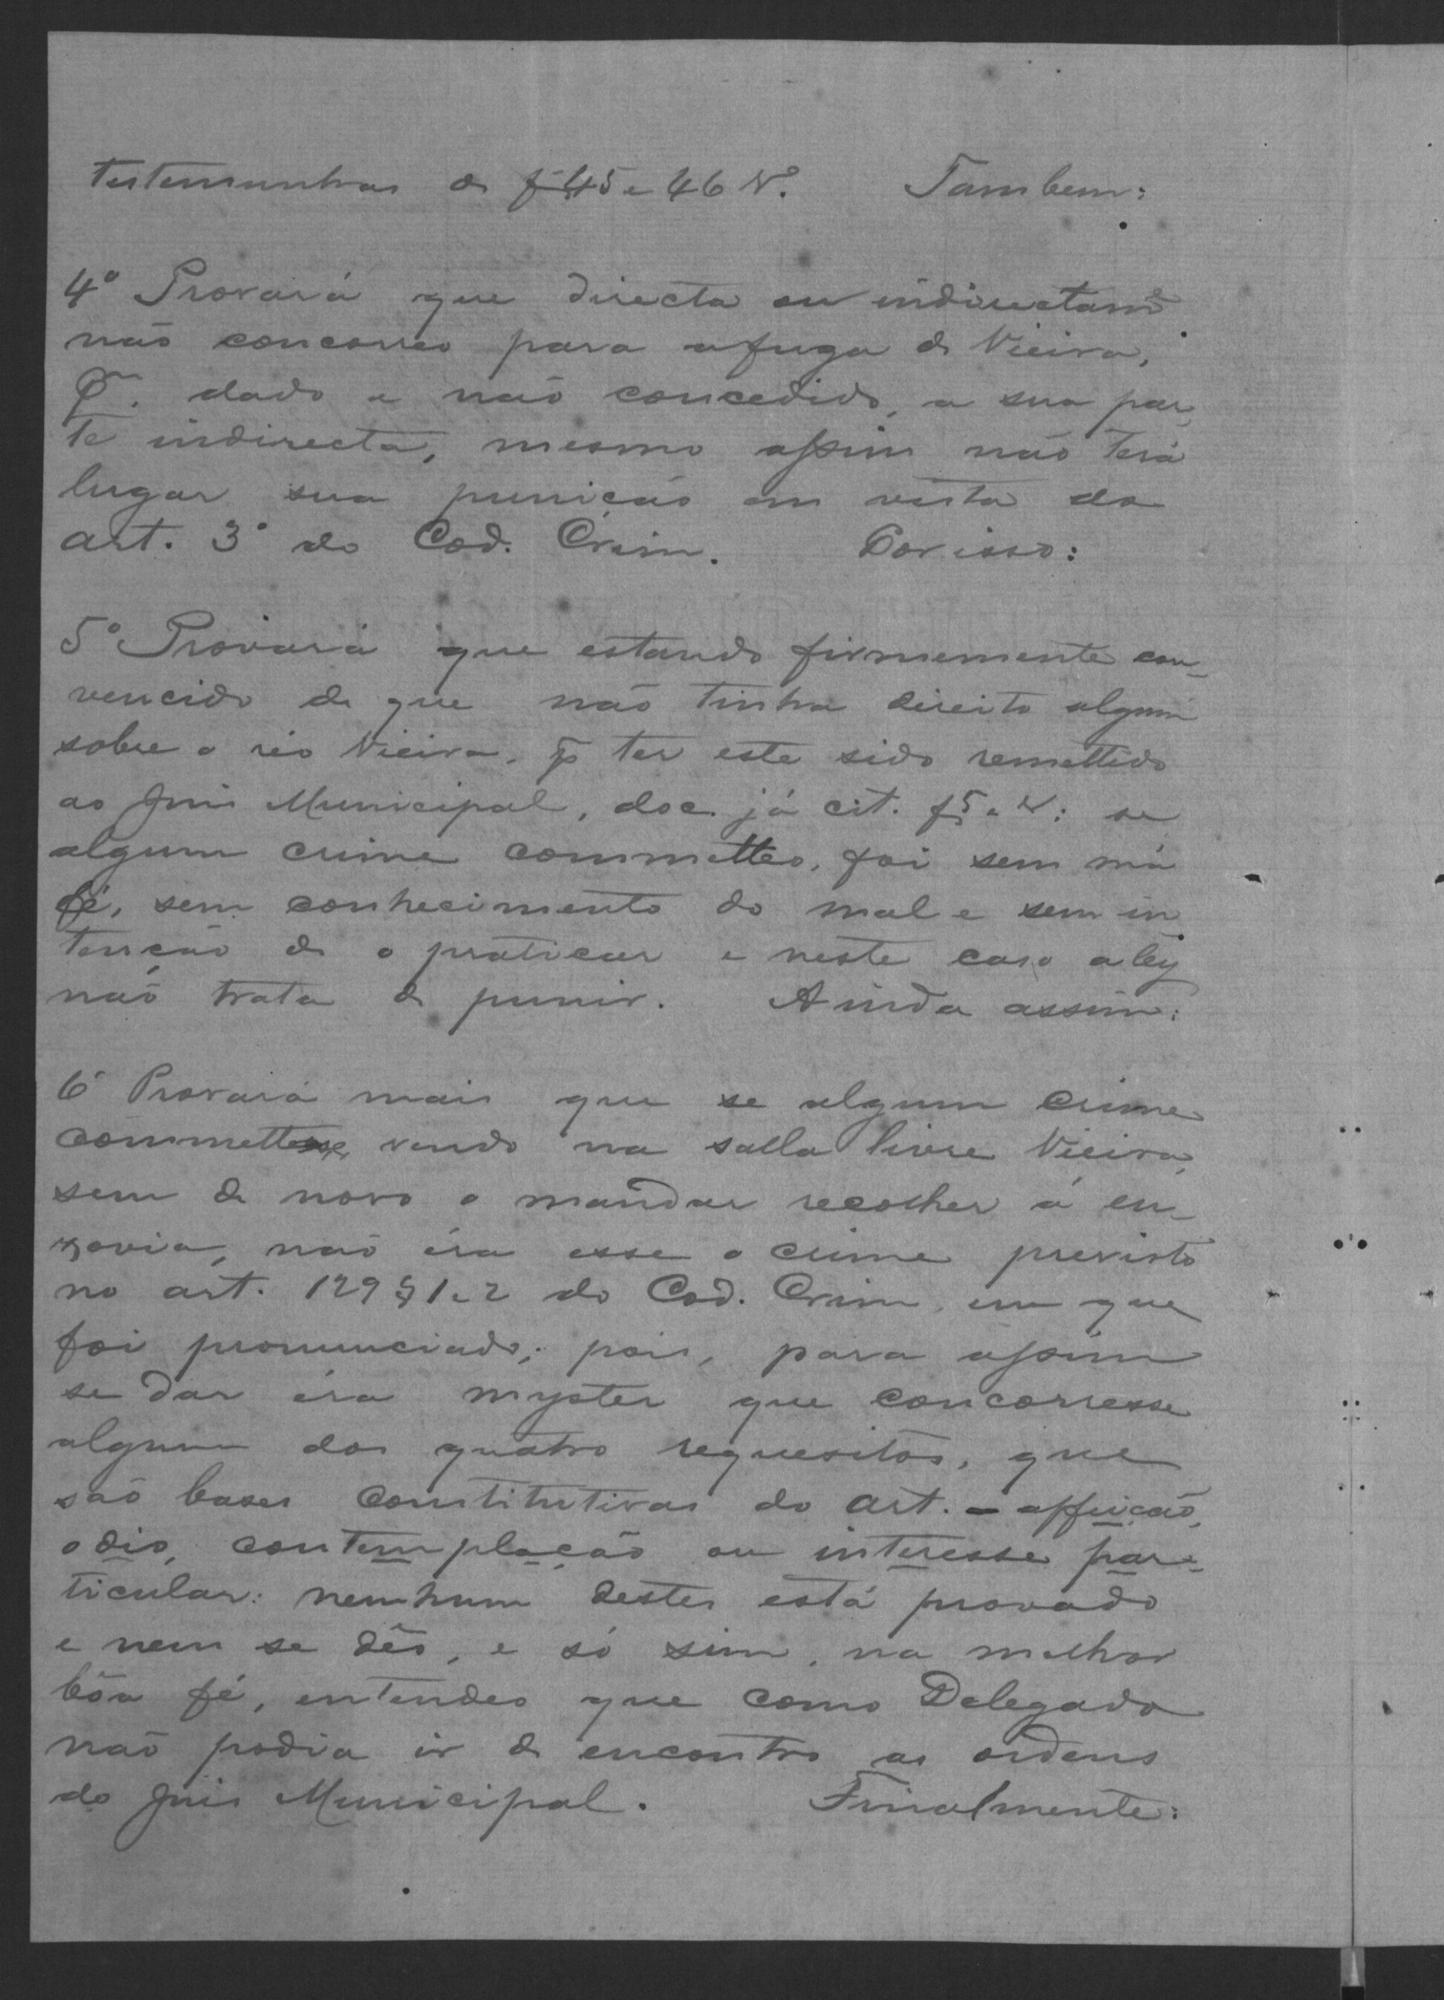 testemunhas de f 45 e 46 V.º Tambem:
4º Provará que directa ou indirectamᵉ
não concorreo para a fuga de Vieira,
Qᵈᵒ. dado e não concedido, a sua par
te indirecta, mesmo assim não terá
lugar sua punição em vista do
art. 3º do Cod. Crim. Por isso:
5º Provará que estando firmemente con-
vencido de que não tinha direito algum
sobre o réo Vieira, p ter este sido remettido
ao Juis Municipal, doc. já cit. f 5 e V: se
algum crime commetteo, foi sem má
fé, sem conhecimento do mal e sem in
tenção de o praticar e neste caso a ley
não trata de punir. Ainda assim:
6º Provará mais que se algum crime
commettesse, vendo na salla livre Vieira,
sem de novo o mandar recolher á en-
xovia, não éra esse o crime previsto
no art. 129 § 1 e 2 do Cod. Crim. em que
foi pronunciado; pois, para assim
se dar éra myster que concorresse
algum dos quatro requesitos, que
são bases constitutivas do art. - affeição,
odio, contemplação ou interesse par-
ticular: nemhum destes está provado
e nem se dêo, e só sim, na melhor
bôa fé, entendeo que como Delegado
não podia ir de encontro as ordens
do Juis Municipal. Finalmente: